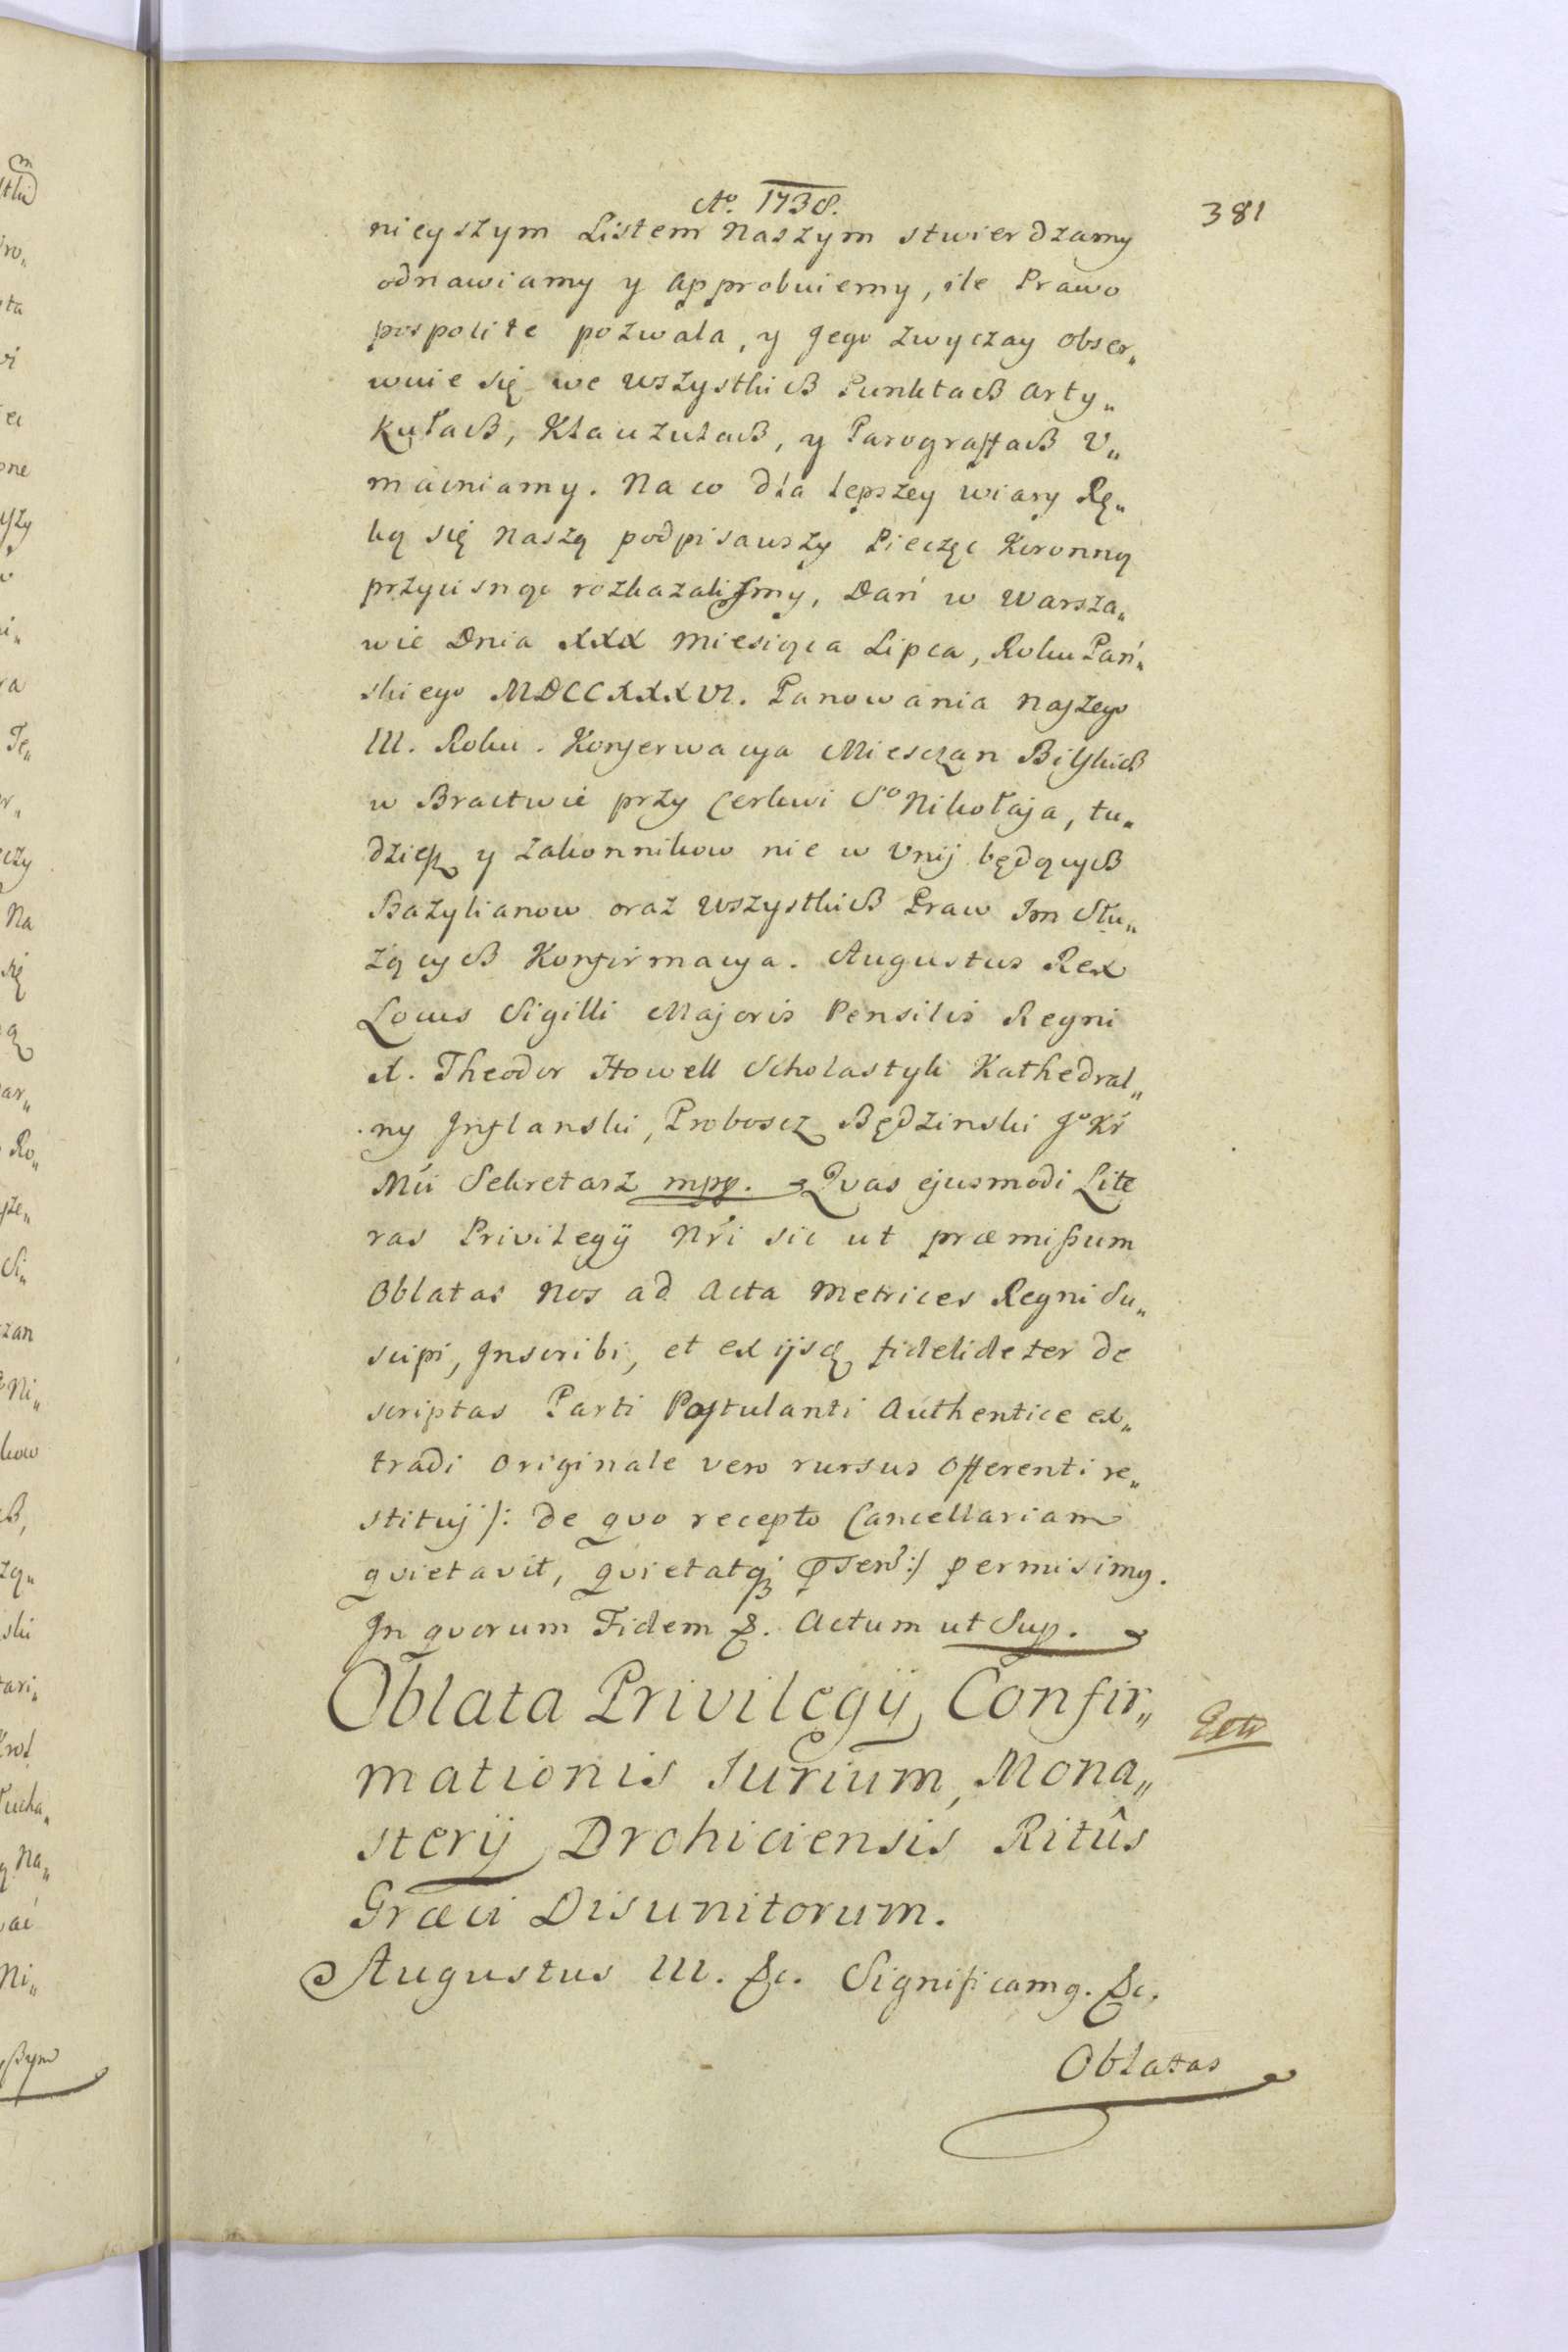 Aº. 1738.
381
nieyszym Listem Naszym stwierdzamy
odnawiamy y approbuiemy, ile Prawo
pospolite pozwala, y Jego zwyczay obser„
wuie się we wszystkich Punktach arty„
kułach, Klauzulach, y Parograffach V„
macniamy. Na co dla lepszey wiary Rę„
ką się Naszą podpisawszy Pieczęc Koronną
przycisnąc rozkazalismy, Dań w Warsza„
wie Dnia XXX Miesiąca Lipca, Roku Pań„
skiego MDCCXXXVI. Panowania Naszego
III. Roku. Konserwacya Miesczan Bilskich
w Bractwie przy Cerkwi Sº Nikołaja, tu„
dziesz y zakonnikow nie w Vnij będących
Bazylianow oraz wszystkich Praw Im Słu„
żących Konfirmacya. Augustus Rex
Locus Sigilli Majoris Pensilis Regni
X. Theodor Howell Scholastyk Kathedral„
ny Inflanski, Proboscz Będzinski Jº Kr
Mci Sekretarz mpp. Qvas ejusmodi Lite
ras Privilegÿ Nri sic ut præmißum
Oblatas Nos ad Acta Metrices Regni Su„
scipi, Inscribi, et ex ijsq fidelideter de
scriptas Parti Postulanti Authentice ex„
tradi Originale vero rursus Offerenti re„
stituj /: de qvo recepto Cancellariam
qvietavit, qvietatq; pnserd :/ permisimg.
In qvorum Fidem &. Actum ut Sup.
Oblata Privilegÿ Confir„
mationis Jurium, Mona„
sterÿ Drohiciensis Ritûs
Græci Disunitorum.
Augustus III. &c. Significamg. &c.
Oblatas